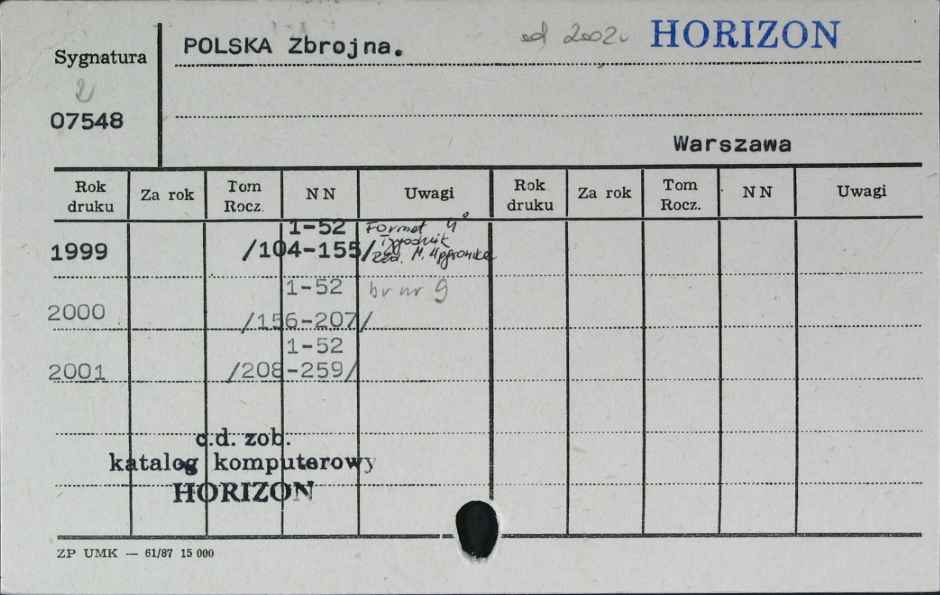 Sygnatura
POLSKA Zbrojna.
od 2002r HORIZON
07548
Warszawa
Rok druku Za rok Tom Rocz. N N Uwagi Rok druku Za rok Tom Rocz. N N Uwagi
1-52 Format 4°
1999 /104-155/ Tygodnik
Red. M.
1-52 br nr 9
2000
/156-207/
1-52
2001 /208-259/
c.d. zob.
katalog komputerowy
HORIZON
ZP UMK — 61/87 15 000